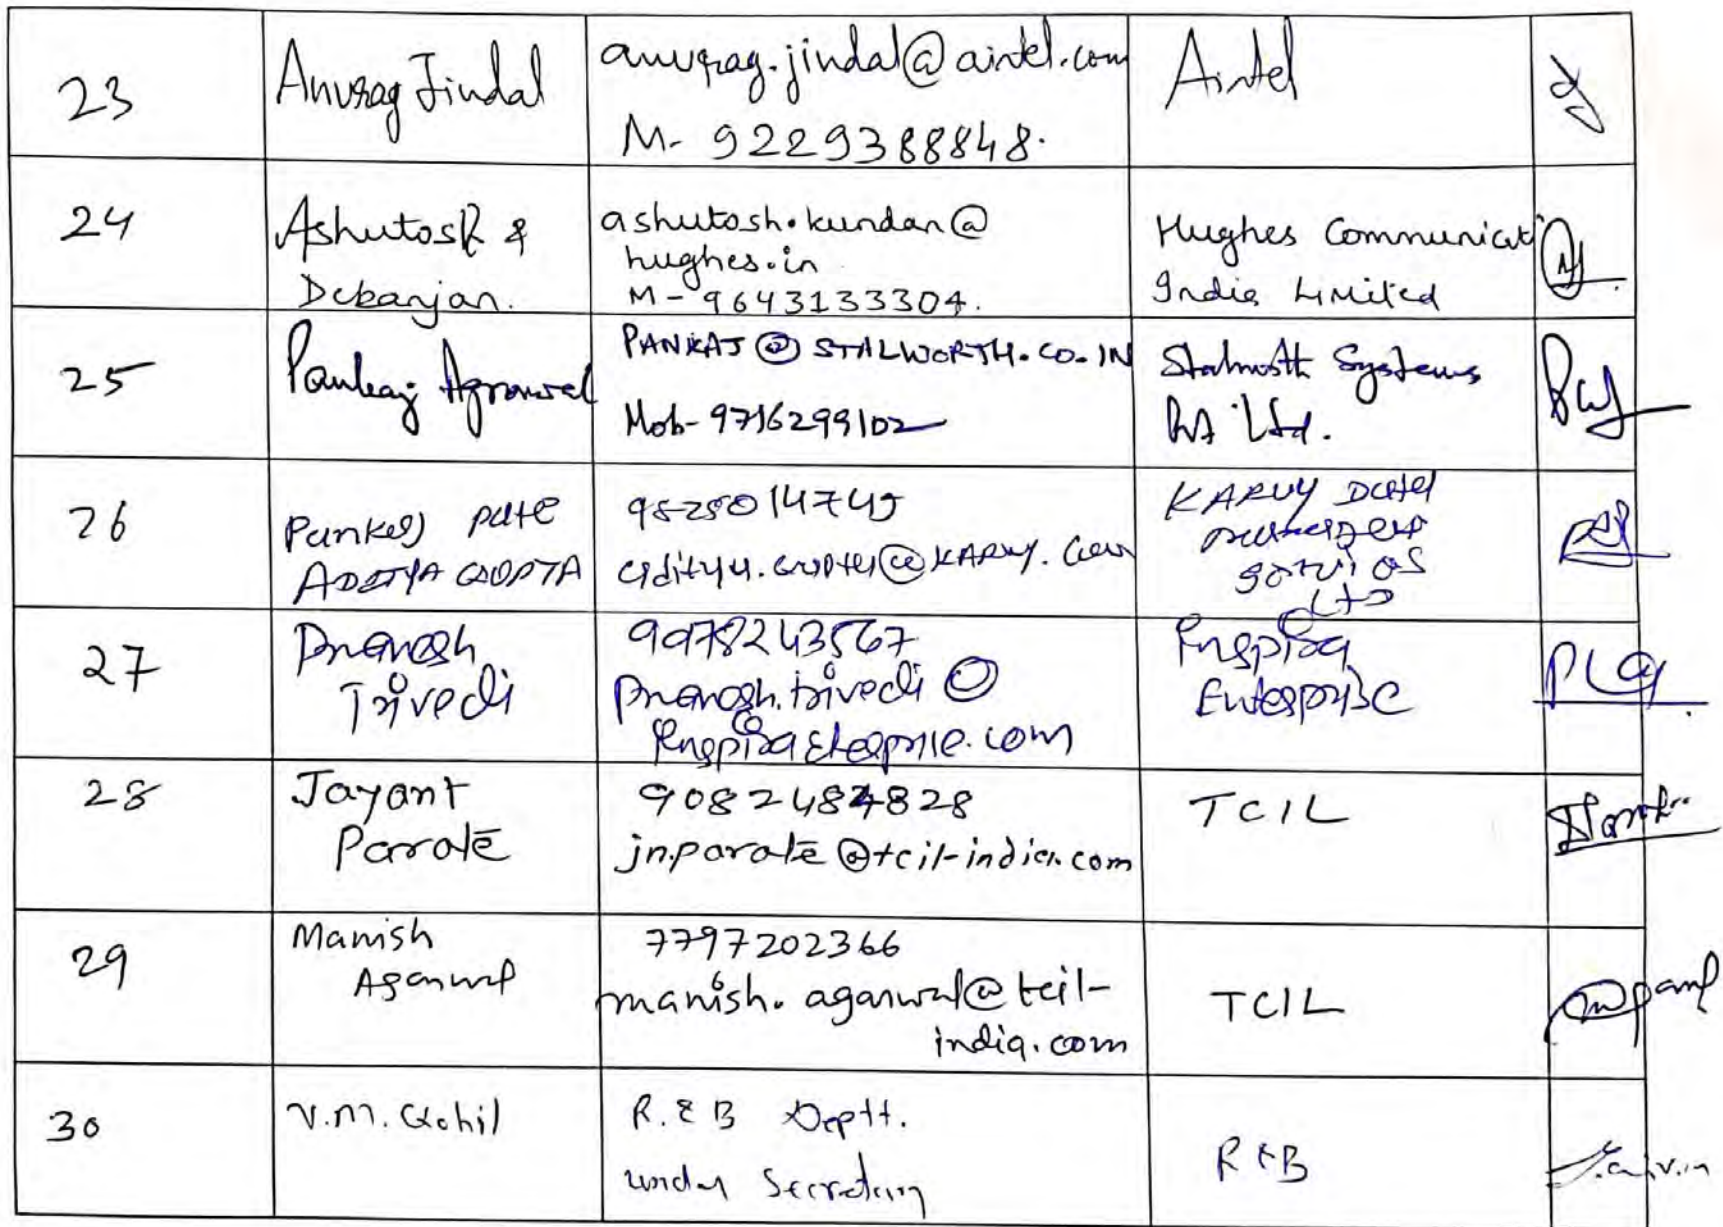 23
Anurag Jindal
anurag.jindal@airtel.com
M- 9229388848.
Airtel
24
Ashutosh &
Debanjan.
ashutosh.kundan@
hughes.in
M-9643133304.
Hughes Communicat
India Limited
25
Pankaj Agrawal
PANKAJ@STALWORTH.CO.IN
Mob-9716299102
Stalworth Systems
Pvt Ltd.
26
Pankaj
ADITYA GUPTA
aditya.gupta@KARVY.com
KARVY Data
Management
Services
Ltd
27
Pranesh
Trivedi
9978243567
Enterprise
28
Jayant
Parate
9082484828
jn.parate@tcil-india.com
TCIL
29
Manish
Agarwal
7797202366
manish.agarwal@tcil-
india.com
TCIL
30
V.M. Gohil
R. & B Deptt.
under Secretary
R & B